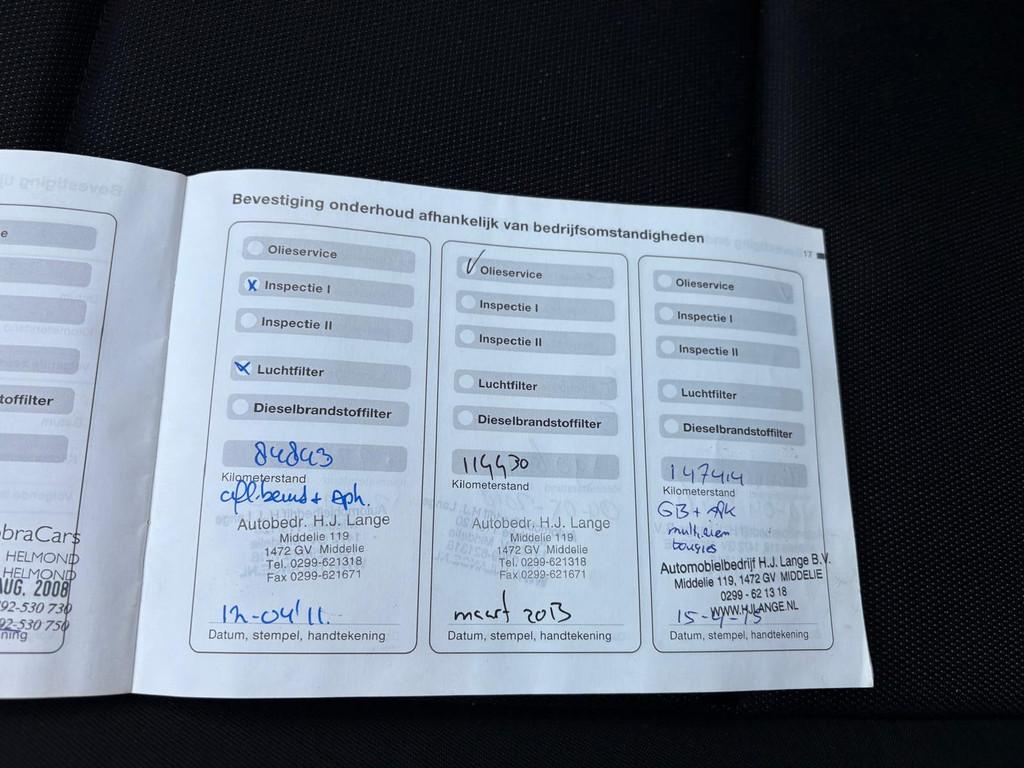 e
toffilter
obraCars
HELMOND
HELMOND
AUG. 2008
92-530 730
92-530 750
ning
Bevestiging onderhoud afhankelijk van bedrijfsomstandigheden
17
Olieservice
X Inspectie I
Inspectie II
X Luchtfilter
Dieselbrandstoffilter
84843
Kilometerstand
afl.beurt + Aph.
Autobedr. H.J. Lange
Middelie 119
1472 GV Middelie
Tel. 0299-621318
Fax 0299-621671
12-04'11.
Datum, stempel, handtekening
Olieservice
Inspectie I
Inspectie II
Luchtfilter
Dieselbrandstoffilter
114430
Kilometerstand
Autobedr. H.J. Lange
Middelie 119
1472 GV Middelie
Tel. 0299-621318
Fax 0299-621671
maart 2013
Datum, stempel, handtekening
Olieservice
Inspectie I
Inspectie II
Luchtfilter
Dieselbrandstoffilter
147414
Kilometerstand
GB + APK
multiriem
bougies
Automobielbedrijf H.J. Lange B.V.
Middelie 119, 1472 GV MIDDELIE
0299 - 62 13 18
WWW.HJLANGE.NL
15-4-15
Datum, stempel, handtekening